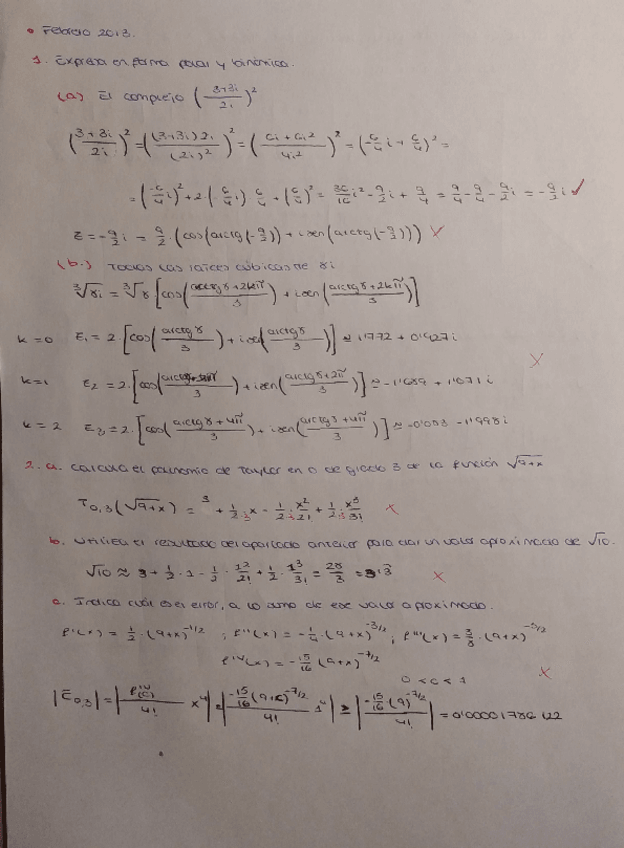 • Febrero 2013.
1. Expresa en forma polar y binómica.
(a) El complejo (3+3i/2i)²
(3+3i/2i)² = ((3+3i)2i/(2i)²)² = (6i+6i²/4i²)² = (-6/4 i + 6/4)² =
= (-6/4 i)² + 2·(-6/4 i)· 6/4 + (6/4)² = 36/16 i² - 9/2 i + 9/4 = 9/4 - 9/4 - 9/2 i = -9/2 i ✓
z = -9/2 i = 9/2 · (cos(arctg(-9/2)) + i sen(arctg(-9/2))) X
(b.) Todas las raíces cúbicas de 8i
∛8i = ∛8 [cos(arctg8+2kπ/3) + i sen(arctg8+2kπ/3)]
k=0 Z₁ = 2 [cos(arctg8/3) + i sen(arctg8/3)] ≈ 1'772 + 0'927i
X
k=1 Z₂ = 2·[cos(arctg8+2π/3) + i sen(arctg8+2π/3)] ≈ -1'689 + 1'071i
k=2 Z₃ = 2·[cos(arctg8+4π/3) + i sen(arctg8+4π/3)] ≈ -0'083 - 1'998i
2. a. Calcula el polinomio de Taylor en 0 de grado 3 de la función √9+x
T₀,₃(√9+x) = 3 + 1/2·3 x - 1/2·3 x²/2! + 1/2·3 x³/3! X
b. Utiliza el resultado del apartado anterior para dar un valor aproximado de √10.
√10 ≈ 3 + 1/2 · 1 - 1/2 · 1²/2! + 1/2 · 1³/3! = 28/3 = 9'3 X
c. Indica cuál es el error, a lo sumo de ese valor aproximado.
f'(x) = 1/2 · (9+x)^-1/2 ; f''(x) = -1/4 · (9+x)^-3/2 ; f'''(x) = 3/8 · (9+x)^-5/2
f^IV(x) = -15/16 (9+x)^-7/2 X
0 < c < 1
|E₀,₃| = |f^IV(c)/4! x⁴| = |-15/16 (9+c)^-7/2/4! 1⁴| ≥ |-15/16 (9)^-7/2/4!| = 0'00001786122